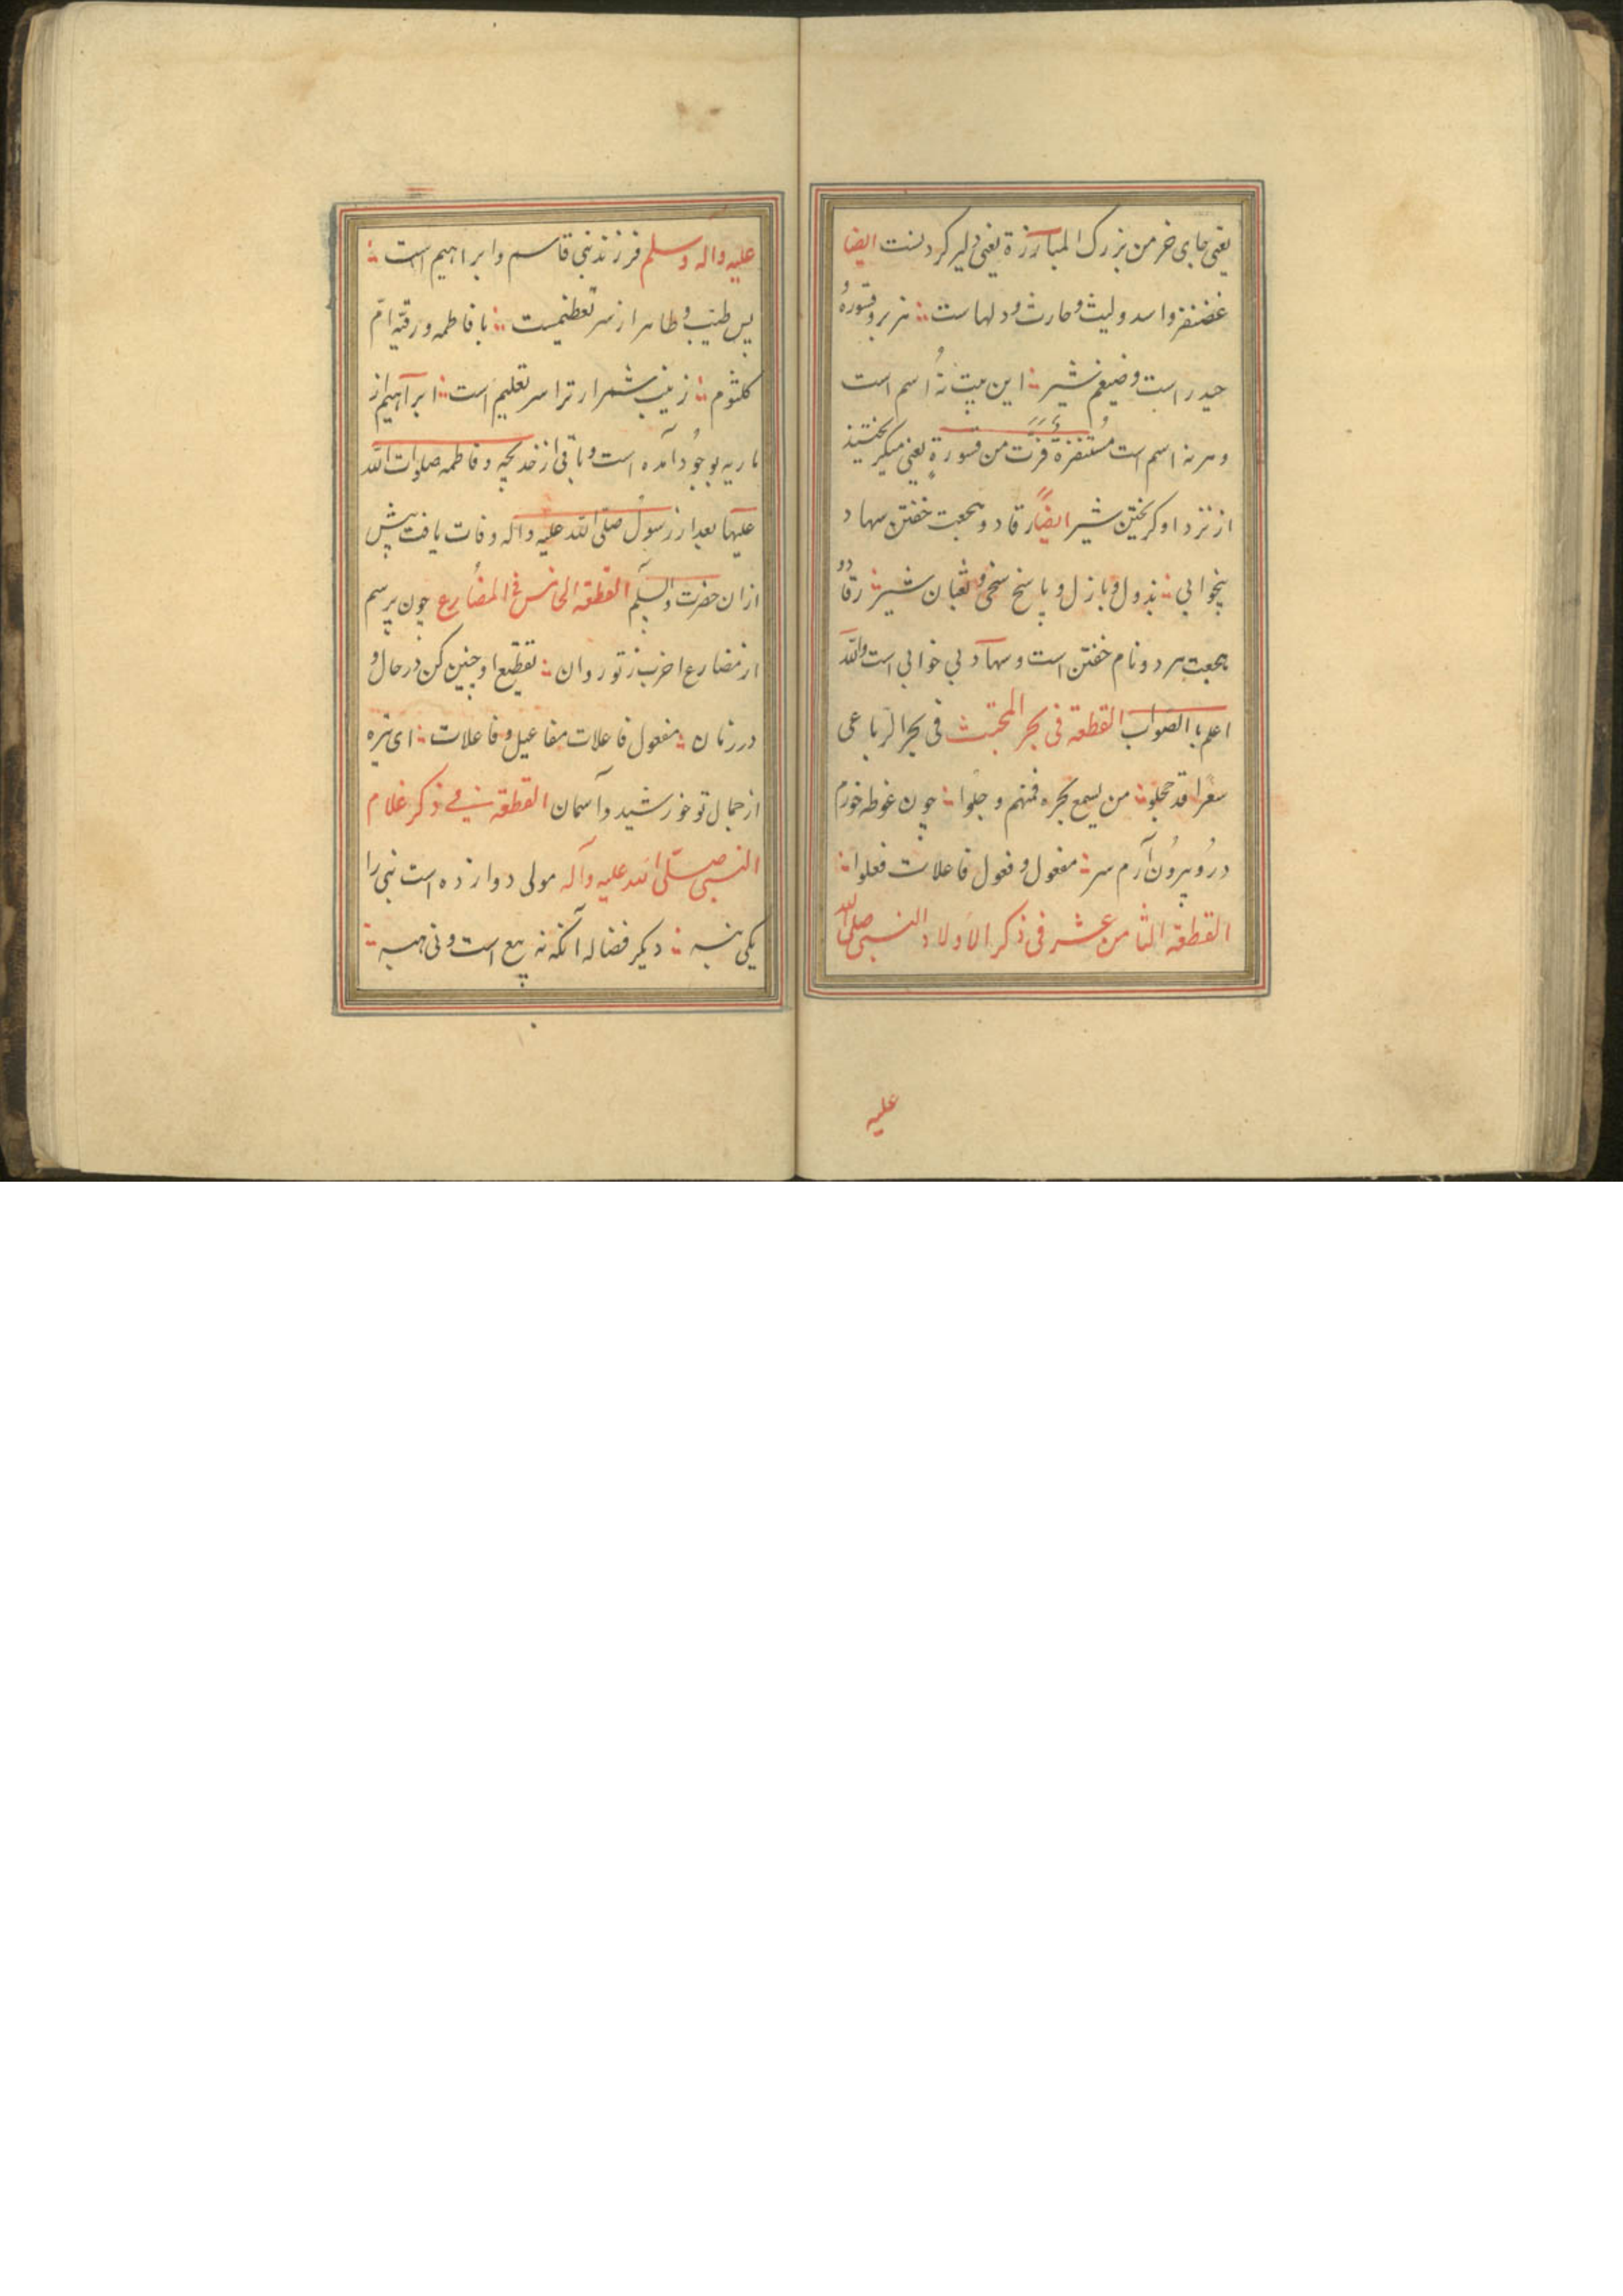 یعنی جای خرمن بزرک المبارزة یعنی دلیر کردنست ایضا
غضنفر و اسد و لیث و حارث و دلهاست ؞ هزبر و قسوره و
حیدر است و ضیغم شیر ؞ این بیت نُه اسم است
و هر نه اسم است مُستنفرة فرّت من قسورةٍ یعنی میکریختنید
از نزد او کریختن شیر ایضاً رقاد و هجعت خفتن سهاد
بیخوابی ؞ بذول و باذل و پاسخ سخی و ثعبان شیر ؞ رقاد و
هجعت هر دو نام خفتن است و سهاد بی خوابی است والله
اعلم با الصواب القطعة فی بحر المجتث فی بحر الرباعی
سعرا قد حجلوا ؞ من یسمع بحره فمنهم وجلوا ؞ چون غوطه خورم
درو و بیرون آرم سر ؞ مفعول و فعول فاعلات فعلوا ؞
القطعة الثامن عشر فی ذکر الاولاد النبی صلی الله
علیه
علیه واله وسلم فرزند نبی قاسم و ابراهیم است ؞
پس طیب و طاهر از سر تعظیمست ؞ با فاطمه و رقیّه امّ
کلثوم ؞ زینب شمرار ترا سر تعلیم است ؞ ابراهیم از
ماریه بوجود آمده است و باقی از خدیجه و فاطمه صلوات الله
علیها بعد از رسول صلّی الله علیه واله وفات یافت پیش
ازان حضرت والسلم القطعة الخامس فی المضارع چون پرسم
از مضارع اخرب ز تو روان ؞ تقطیع او چنین کن در حال و
در زمان ؞ مفعول فاعلات مفاعیل و فاعلات ؞ ای تیره
از جمال تو خورشید و آسمان القطعة فی ذکر غلام
النبی صلّی الله علیه وآله مولی دوازده است نبی را
یکی نبیه ؞ دیکر فضاله آنکه نه بیع است و نی هبه ؞